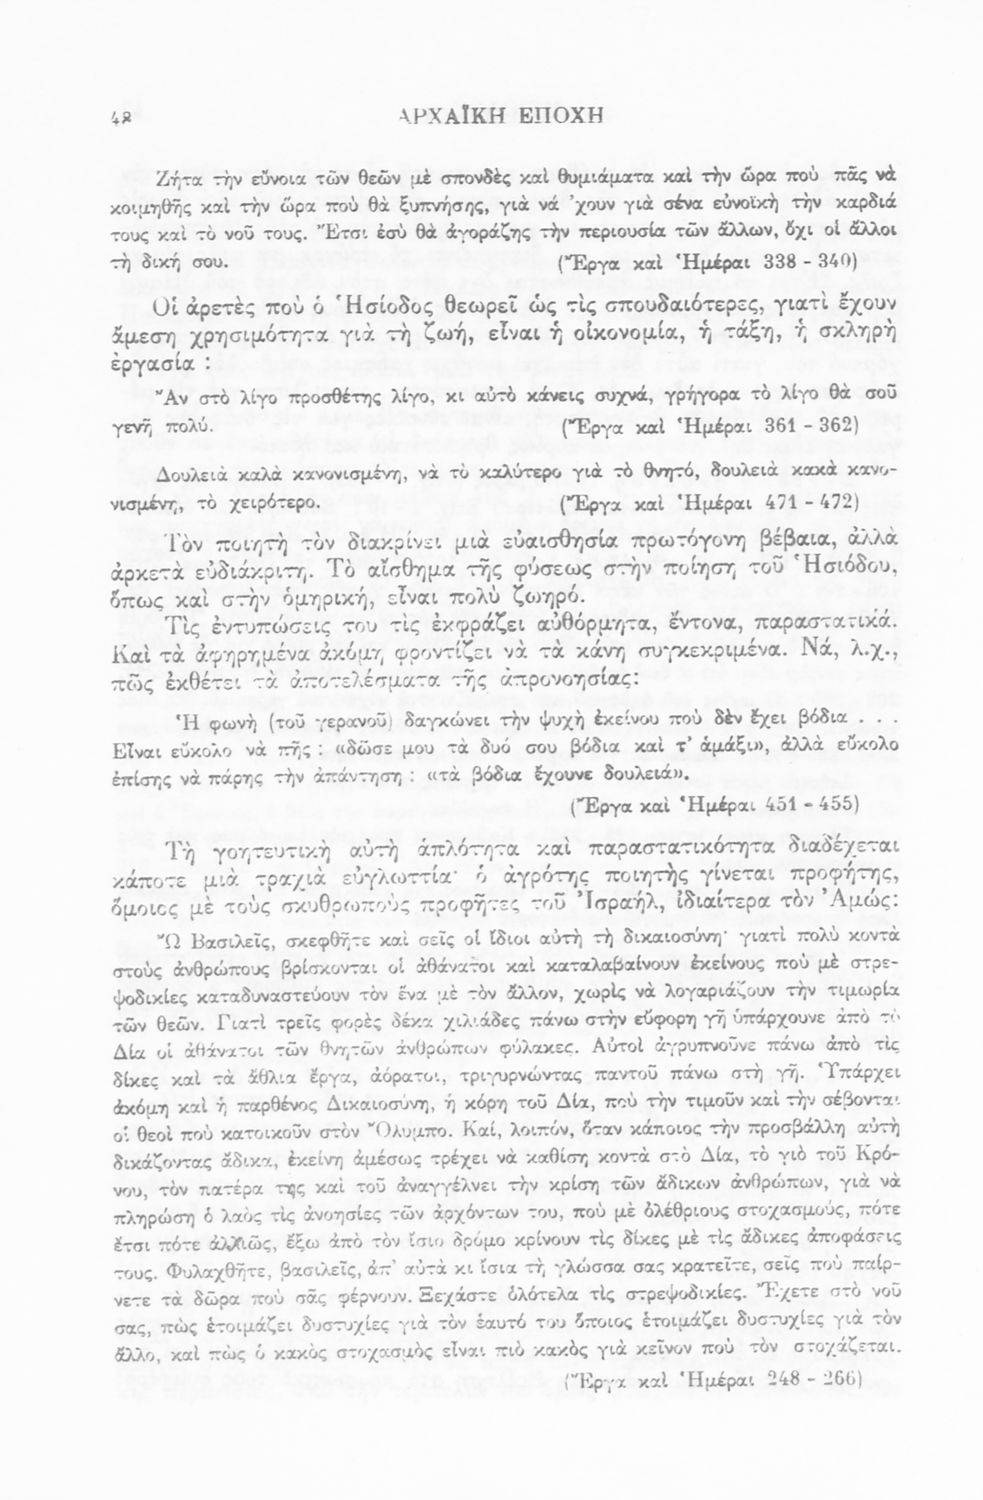 42 ΑΡΧΑΪΚΗ ΕΠΟΧΗ
Ζήτα τὴν εὔνοια τῶν θεῶν μὲ σπονδὲς καὶ θυμιάματα καὶ τὴν ὥρα ποὺ πᾶς νὰ
κοιμηθῆς καὶ τὴν ὥρα ποὺ θὰ ξυπνήσης, γιὰ νά 'χουν γιὰ σένα εὐνοϊκὴ τὴν καρδιά
τους καὶ τὸ νοῦ τους. Ἔτσι ἐσὺ θὰ ἀγοράζης τὴν περιουσία τῶν ἄλλων, ὄχι οἱ ἄλλοι
τὴ δική σου. (Ἔργα καὶ Ἡμέραι 338 - 340)
Οἱ ἀρετὲς ποὺ ὁ Ἡσίοδος θεωρεῖ ὡς τὶς σπουδαιότερες, γιατὶ ἔχουν
ἄμεση χρησιμότητα γιὰ τὴ ζωή, εἶναι ἡ οἰκονομία, ἡ τάξη, ἡ σκληρὴ
ἐργασία :
Ἂν στὸ λίγο προσθέτης λίγο, κι αὐτὸ κάνεις συχνά, γρήγορα τὸ λίγο θὰ σοῦ
γενῆ πολύ. (Ἔργα καὶ Ἡμέραι 361 - 362)
Δουλειὰ καλὰ κανονισμένη, νὰ τὸ καλύτερο γιὰ τὸ θνητό, δουλειὰ κακὰ κανο-
νισμένη, τὸ χειρότερο. (Ἔργα καὶ Ἡμέραι 471 - 472)
Τὸν ποιητὴ τὸν διακρίνει μιὰ εὐαισθησία πρωτόγονη βέβαια, ἀλλὰ
ἀρκετὰ εὐδιάκριτη. Τὸ αἴσθημα τῆς φύσεως στὴν ποίηση τοῦ Ἡσιόδου,
ὅπως καὶ στὴν ὁμηρική, εἶναι πολὺ ζωηρό.
Τὶς ἐντυπώσεις του τὶς ἐκφράζει αὐθόρμητα, ἔντονα, παραστατικά.
Καὶ τὰ ἀφηρημένα ἀκόμη φροντίζει νὰ τὰ κάνη συγκεκριμένα. Νά, λ.χ.,
πῶς ἐκθέτει τὰ ἀποτελέσματα τῆς ἀπρονοησίας:
Ἡ φωνὴ (τοῦ γερανοῦ) δαγκώνει τὴν ψυχὴ ἐκείνου ποὺ δὲν ἔχει βόδια . . .
Εἶναι εὔκολο νὰ πῆς : «δῶσε μου τὰ δυό σου βόδια καὶ τ' ἁμάξι», ἀλλὰ εὔκολο
ἐπίσης νὰ πάρης τὴν ἀπάντηση : «τὰ βόδια ἔχουνε δουλειά».
(Ἔργα καὶ Ἡμέραι 451 - 455)
Τὴ γοητευτικὴ αὐτὴ ἁπλότητα καὶ παραστατικότητα διαδέχεται
κάποτε μιὰ τραχιὰ εὐγλωττία· ὁ ἀγρότης ποιητὴς γίνεται προφήτης,
ὅμοιος μὲ τοὺς σκυθρωποὺς προφῆτες τοῦ Ἰσραήλ, ἰδιαίτερα τὸν Ἀμώς:
Ὦ Βασιλεῖς, σκεφθῆτε καὶ σεῖς οἱ ἴδιοι αὐτὴ τὴ δικαιοσύνη· γιατὶ πολὺ κοντὰ
στοὺς ἀνθρώπους βρίσκονται οἱ ἀθάνατοι καὶ καταλαβαίνουν ἐκείνους ποὺ μὲ στρε-
ψοδικίες καταδυναστεύουν τὸν ἕνα μὲ τὸν ἄλλον, χωρὶς νὰ λογαριάζουν τὴν τιμωρία
τῶν θεῶν. Γιατὶ τρεῖς φορὲς δέκα χιλιάδες πάνω στὴν εὔφορη γῆ ὑπάρχουνε ἀπὸ τὸ
Δία οἱ ἀθάνατοι τῶν θνητῶν ἀνθρώπων φύλακες. Αὐτοὶ ἀγρυπνοῦνε πάνω ἀπὸ τὶς
δίκες καὶ τὰ ἄθλια ἔργα, ἀόρατοι, τριγυρνώντας παντοῦ πάνω στὴ γῆ. Ὑπάρχει
ἀκόμη καὶ ἡ παρθένος Δικαιοσύνη, ἡ κόρη τοῦ Δία, ποὺ τὴν τιμοῦν καὶ τὴν σέβονται
οἱ θεοὶ ποὺ κατοικοῦν στὸν Ὄλυμπο. Καί, λοιπόν, ὅταν κάποιος τὴν προσβάλλη αὐτὴ
δικάζοντας ἄδικα, ἐκείνη ἀμέσως τρέχει νὰ καθίση κοντὰ στὸ Δία, τὸ γιὸ τοῦ Κρό-
νου, τὸν πατέρα της καὶ τοῦ ἀναγγέλνει τὴν κρίση τῶν ἄδικων ἀνθρώπων, γιὰ νὰ
πληρώση ὁ λαὸς τὶς ἀνοησίες τῶν ἀρχόντων του, ποὺ μὲ ὀλέθριους στοχασμούς, πότε
ἔτσι πότε ἀλλιῶς, ἔξω ἀπὸ τὸν ἴσιο δρόμο κρίνουν τὶς δίκες μὲ τὶς ἄδικες ἀποφάσεις
τους. Φυλαχθῆτε, βασιλεῖς, ἀπ' αὐτὰ κι ἴσια τὴ γλώσσα σας κρατεῖτε, σεῖς ποὺ παίρ-
νετε τὰ δῶρα ποὺ σᾶς φέρνουν. Ξεχάστε ὁλότελα τὶς στρεψοδικίες. Ἔχετε στὸ νοῦ
σας, πὼς ἑτοιμάζει δυστυχίες γιὰ τὸν ἑαυτό του ὅποιος ἑτοιμάζει δυστυχίες γιὰ τὸν
ἄλλο, καὶ πὼς ὁ κακὸς στοχασμὸς εἶναι πιὸ κακὸς γιὰ κεῖνον ποὺ τὸν στοχάζεται.
(Ἔργα καὶ Ἡμέραι 248 - 266)